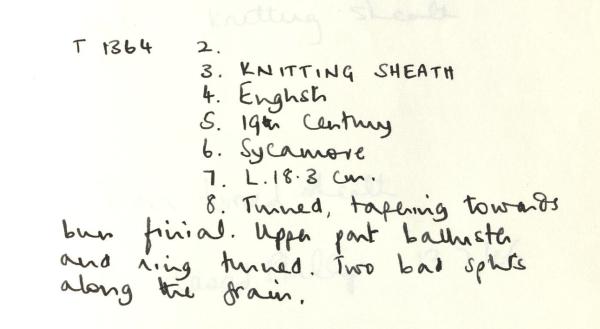 T 1364 2.
3. KNITTING SHEATH
4. English
5. 19th Century
6. Sycamore
7. L.18.3 cm.
8. Turned, tapering towards
bun finial. Upper part balluster
and ring turned. Two bad splits
along the grain.